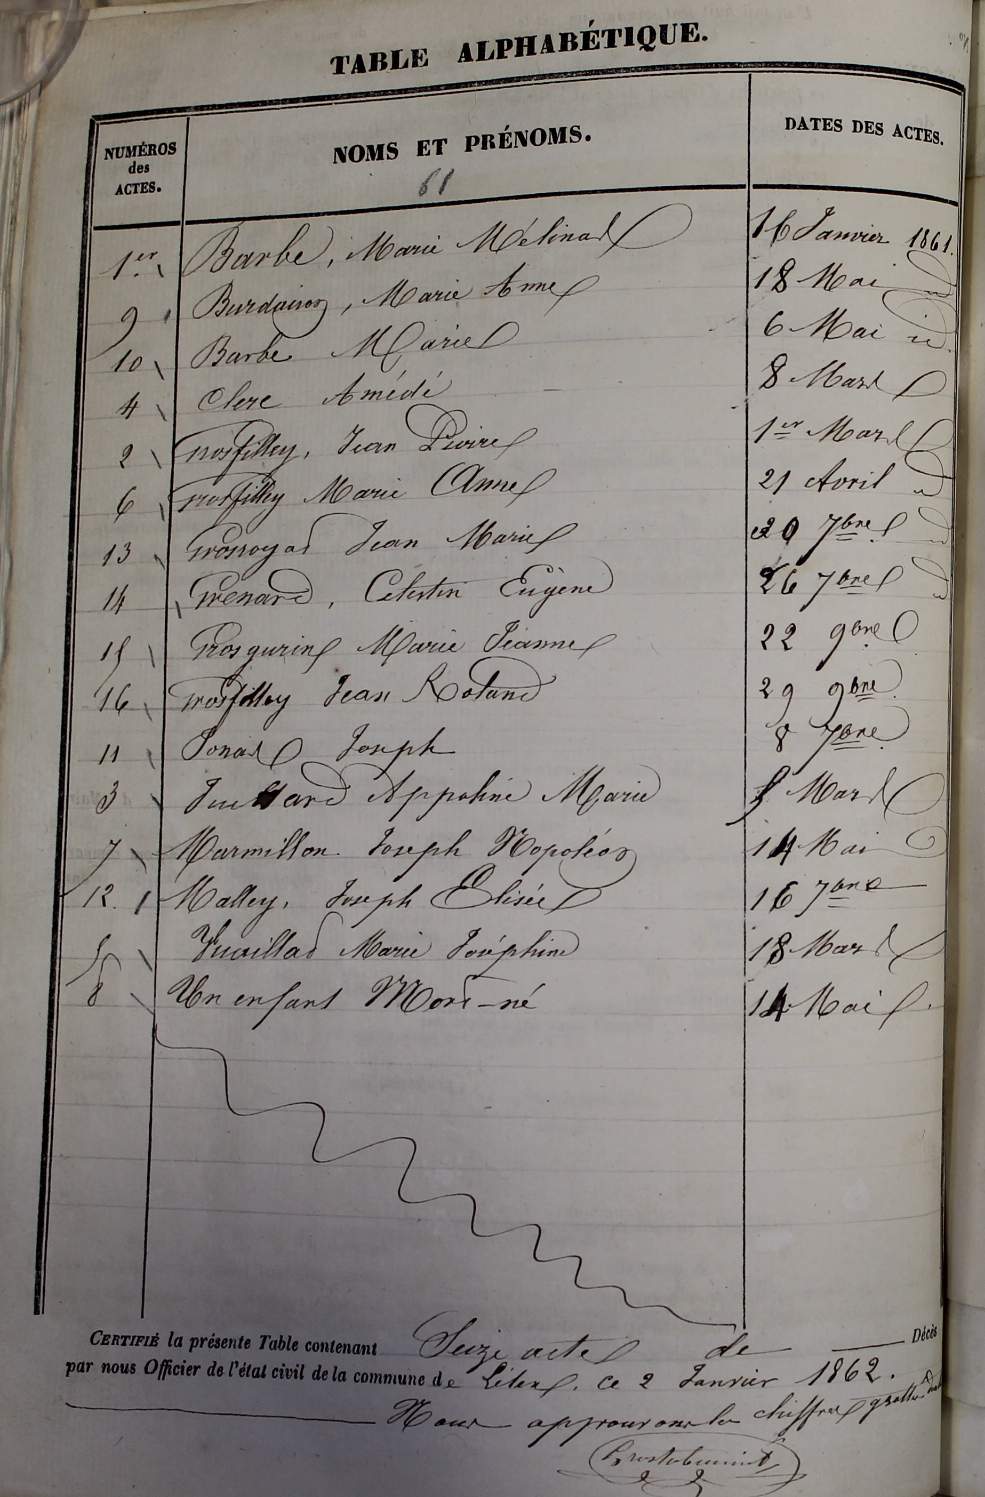 TABLE ALPHABÉTIQUE.
NUMÉROS des ACTES. NOMS ET PRÉNOMS. DATES DES ACTES.
61
1er Barbe, Marie Mélinas 16 Janvier 1861.
9 Burdairon, Marie Anne 18 Mai id
10 Barbe Marie 6 Mai id
4 Clerc Amédé 8 Mars
2 Grosfilley, Jean Pierre 1er Mars
6 Grosfilley Marie Anne 21 Avril id
13 Grosroyas Jean Marie 20 7bre id
14 Grenard, Celestin Eugène 26 7bre id
15 Grosgurin Marie Jeanne 22 9bre
16 Grosfilley Jean Roland 29 9bre
11 Jonas Joseph 8 7bre
3 Juillard Appoline Marie 5 Mars
7 Marmillon Joseph Napoléon 14 Mai
12. Malley, Joseph Elisée 16 7bre
5 Vuaillad Marie Joséphine 18 Mars
8 Un enfant Mort-né 14 Mai
CERTIFIÉ la présente Table contenant Seize actes de Décès
par nous Officier de l'état civil de la commune de ce 2 Janvier 1862.
Nous approuvons les chiffres